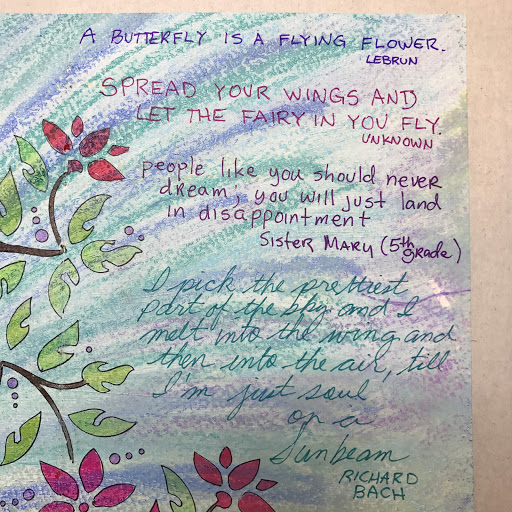 A BUTTERFLY IS A FLYING FLOWER.
LEBRUN
SPREAD YOUR WINGS AND
LET THE FAIRY IN YOU FLY.
UNKNOWN
people like you should never
dream, you will just land
in disappointment
Sister Mary (5th grade)
I pick the prettiest
part of the sky and I
melt into the wing and
then into the air, till
I'm just soul
on a
Sunbeam
RICHARD
BACH